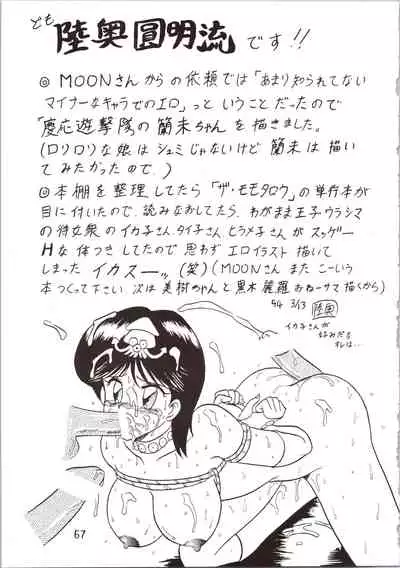 ども 陸奥圓明流です!!
◎MOONさんからの依頼では「あまり知られてない
マイナーなキャラでのエロ」っということだったので
「慶応遊撃隊の蘭未ちゃんを描きました。
(ロリロリな娘はシュミじゃないけど蘭未は描い
てみたかったので。)
◎本棚を整理してたら「ザ・モモタロウ」の単行本が
目に付いたので、読みなおしてたら、わがまま王子ウラシマ
の侍女衆のイカ子さん、タイ子さん、ヒラメ子さんがスッゲー
Hな体つきしてたので思わずエロイラスト描いて
しまった イカスーッ。(笑)(MOONさん また こーいう
本つくって下さい 次は美樹ちゃんと黒木麗羅おねーサマ描くから)
94 3/13 陸奥
イカ子さんが
好みだな
オレは…
67